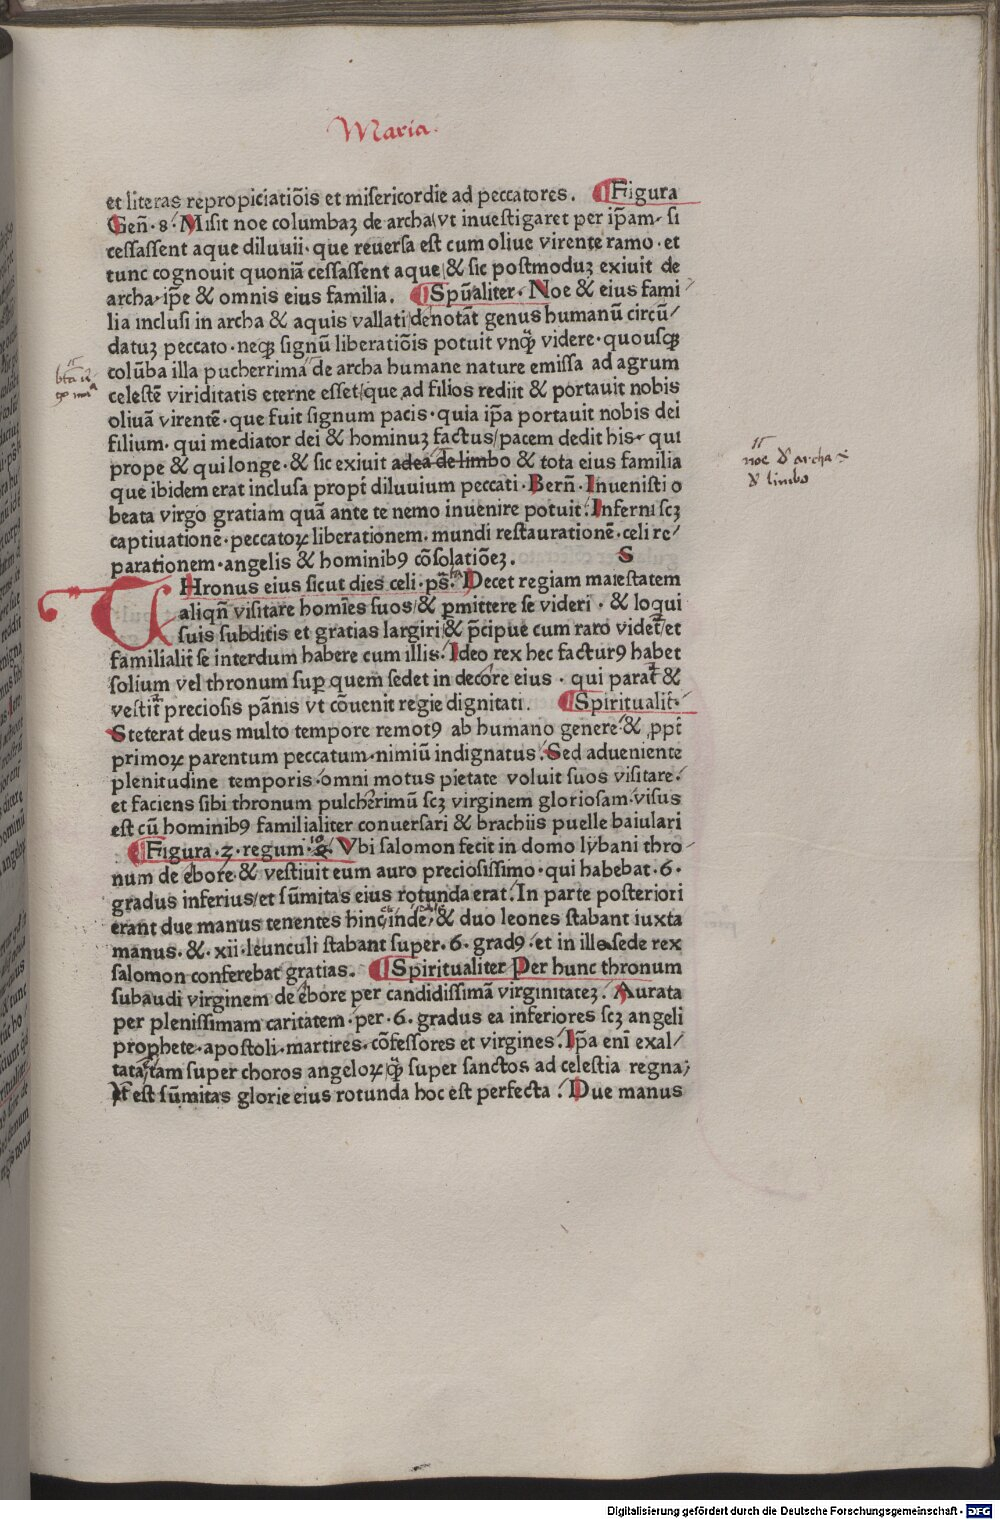 Maria.
et literas repropiciatiõis et misericordie ad peccatores. Figura
Geñ·8· Misit noe columbaꝫ de archa vt inuestigaret per ip̃am si
cessassent aque diluuii· que reuersa est cum oliue virente ramo· et
tunc cognouit quoniã cessassent aque & sic postmoduꝫ exiuit de
archa· ip̃e & omnis eius familia. Spũaliter· Noe & eius fami
lia inclusi in archa & aquis vallati denotãt genus humanũ circũ
datuꝫ peccato· neqꝫ signũ liberatiõis potuit vnqꝫ̃ videre· quousqꝫ
colũba illa pucherrima de archa humane nature emissa ad agrum
celestẽ viriditatis eterne esset/que ad filios rediit & portauit nobis
oliuã virentẽ· que fuit signum pacis· quia ip̃a portauit nobis dei
filium· qui mediator dei & hominuꝫ factus/pacem dedit his· qui
prope & qui longe· & sic exiuit adeã de limbo & tota eius familia
que ibidem erat inclusa propt̃ diluuium peccati· Berñ· Inuenisti o
beata virgo gratiam quã ante te nemo inuenire potuit. Inferni scꝫ
captiuationẽ· peccatoꝝ liberationem· mundi restaurationẽ· celi re
parationem· angelis & hominibꝯ cõsolatiõeꝫ. S
THronus eius sicut dies celi· ps̃. Decet regiam maiestatem
aliqñ visitare homĩes suos/& ꝑmittere se videri· & loqui
suis subditis et gratias largiri & p̃cipue cum raro videt̃/et
familialit̃ se interdum habere cum illis· Ideo rex hec facturꝯ habet
solium vel thronum suꝑ quem sedet in decore eius· qui parat̃ &
vestit̃ preciosis pãnis vt cõuenit regie dignitati. Spiritualit̃·
Steterat deus multo tempore remotꝯ ab humano genere & ꝓpt̃
primoꝝ parentum peccatum· nimiũ indignatus. Sed adueniente
plenitudine temporis· omni motus pietate voluit suos visitare·
et faciens sibi thronum pulcherimũ scꝫ virginem gloriosam· visus
est cũ hominibꝯ familialiter conuersari & brachiis puelle baiulari
Figura·2·regum·10· Vbi salomon fecit in domo lybani thro
num de ebore & vestiuit eum auro preciosissimo· qui habebat·6·
gradus inferius/et sũmitas eius rotunda erat. In parte posteriori
erant due manus tenentes hinc inde· & duo leones stabant iuxta
manus· &·xii·leunculi stabant super·6·gradꝯ· et in illa sede rex
salomon conferebat gratias. Spiritualiter Per hunc thronum
subaudi virginem de ebore per candidissimã virginitateꝫ. Aurata
per plenissimam caritatem· per·6·gradus ea inferiores scꝫ angeli
prophete· apostoli· martires· cõfessores et virgines. Ip̃a enĩ exal
tata tam super choros angeloꝝ qꝫ̃ super sanctos ad celestia regna;
Et est sũmitas glorie eius rotunda hoc est perfecta. Due manus
noe & archa
& limbo
Digitalisierung gefördert durch die Deutsche Forschungsgemeinschaft - DFG